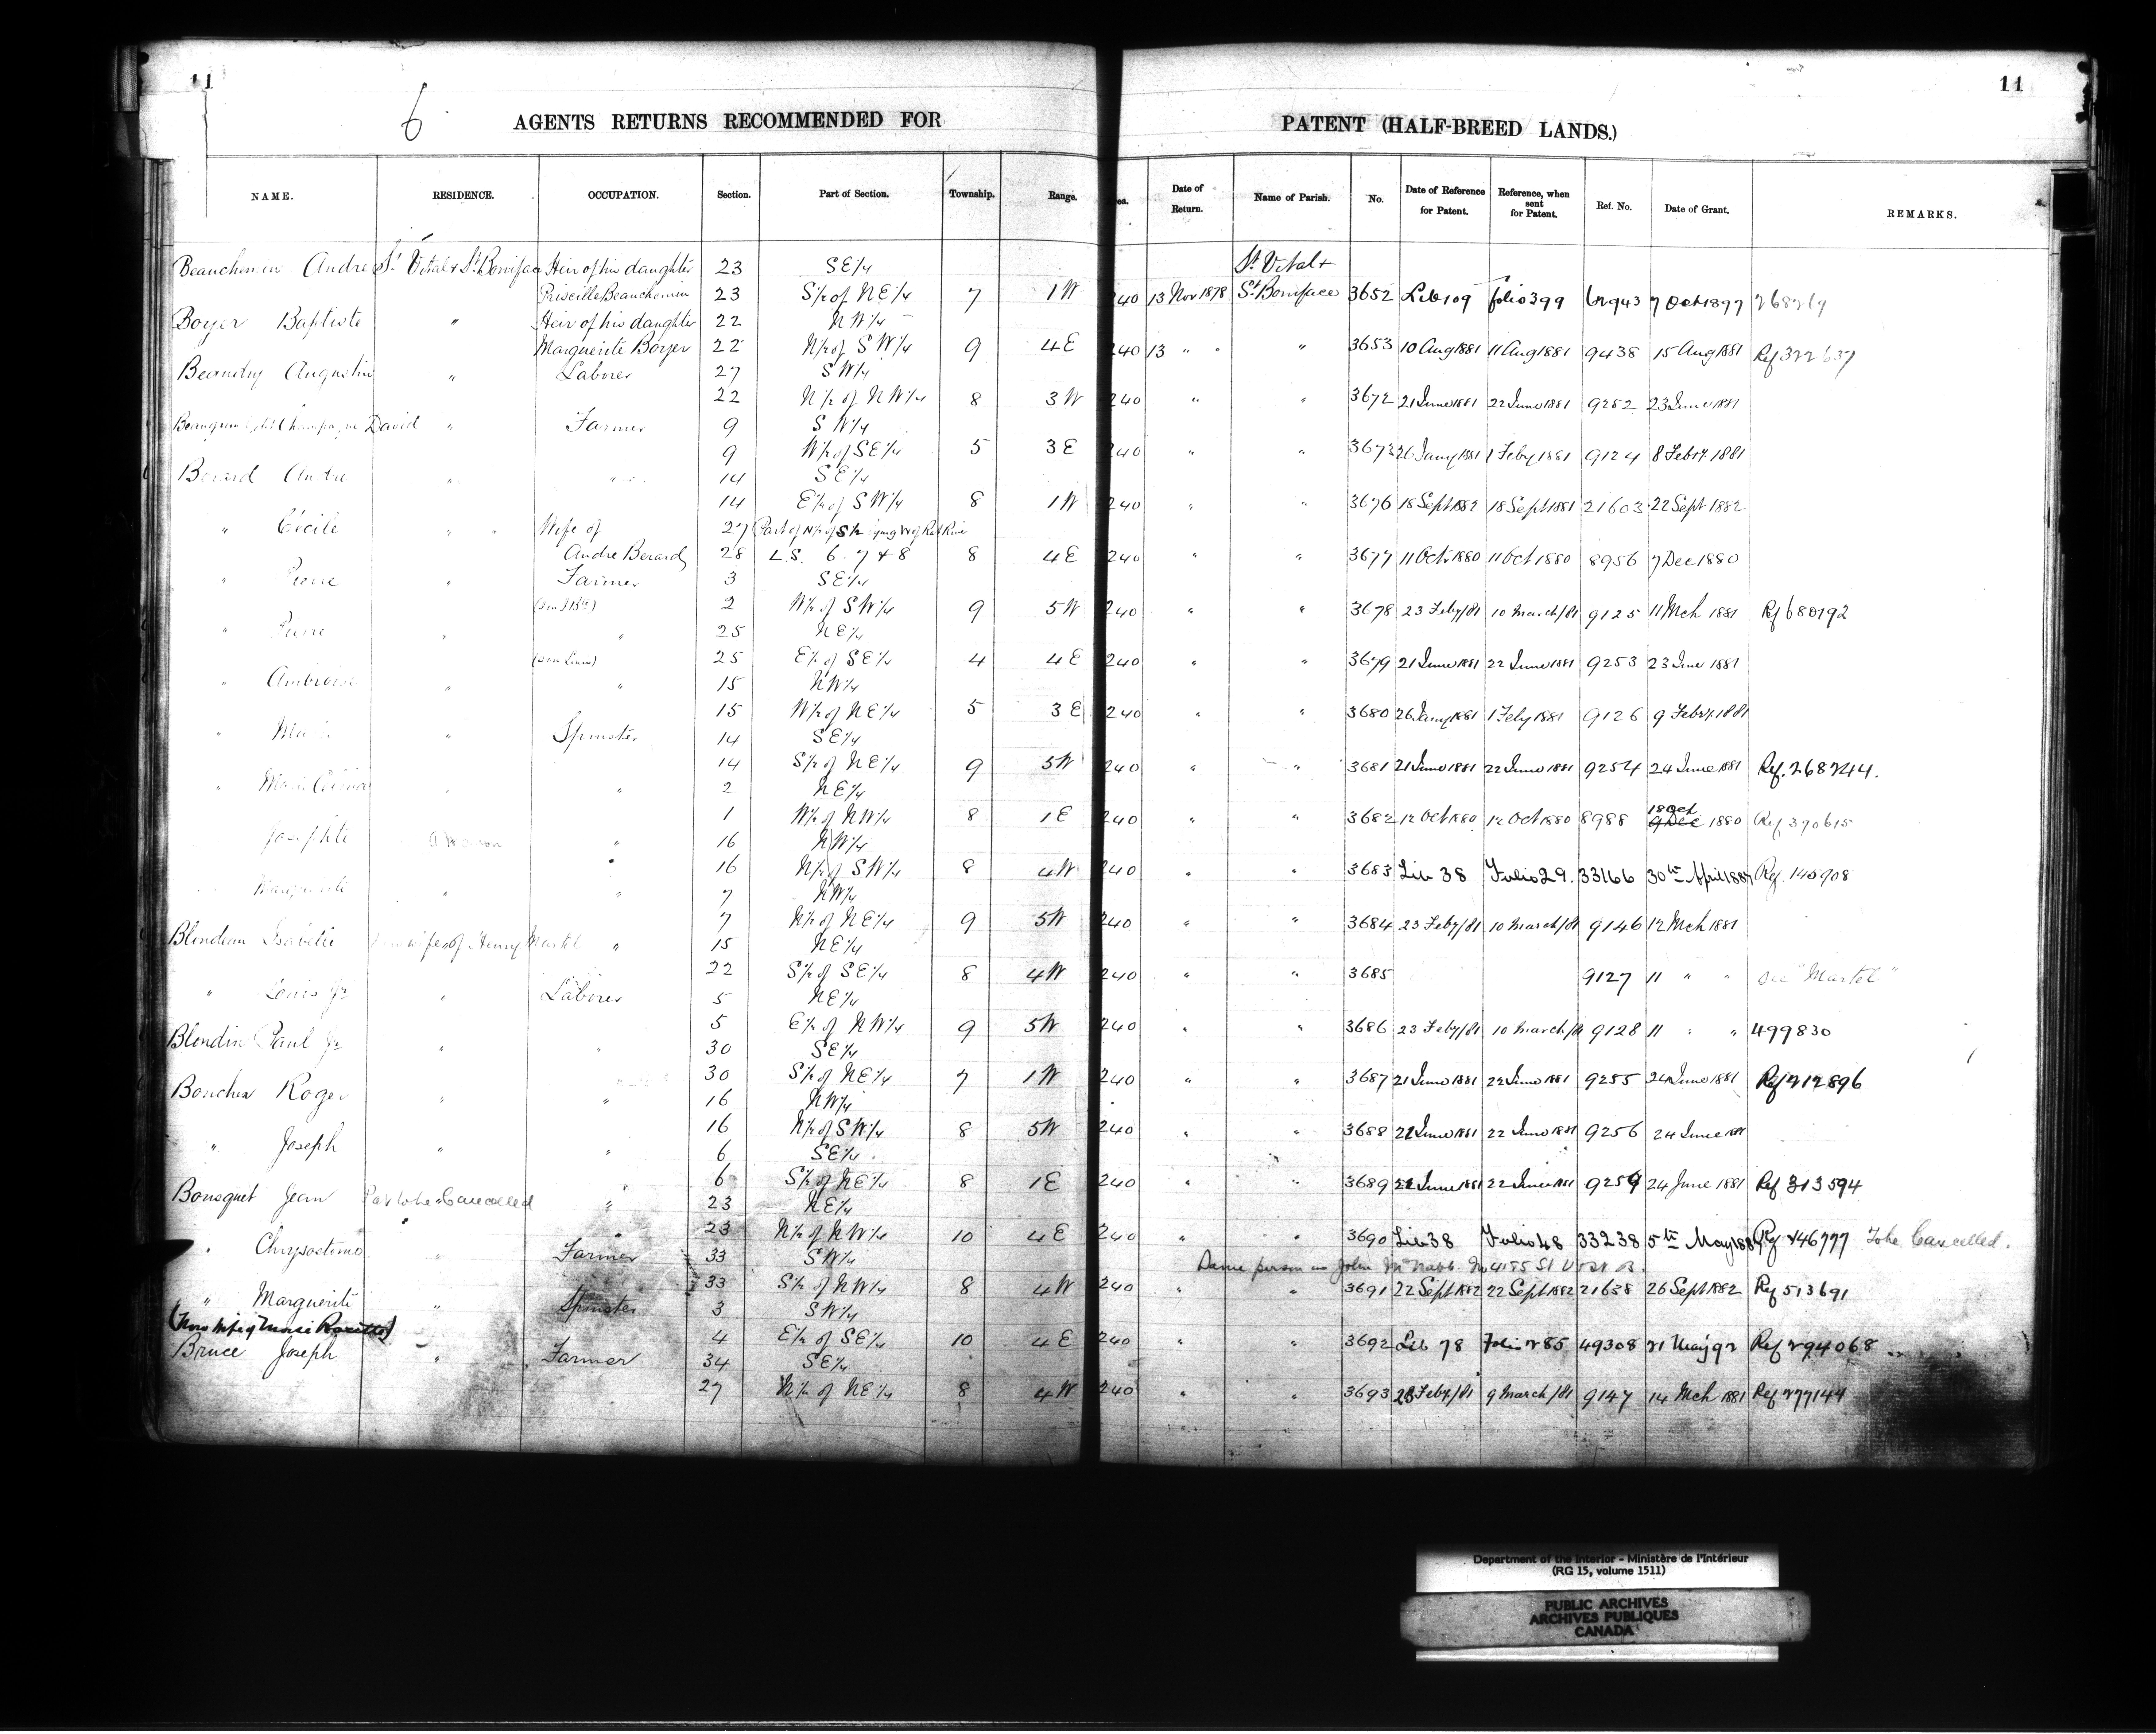 11 11
6
AGENTS RETURNS RECOMMENDED FOR PATENT (HALF-BREED LANDS.)
NAME. RESIDENCE. OCCUPATION. Section. Part of Section. Township. Range. Date of Return. Name of Parish. No. Date of Reference for Patent. Reference, when sent for Patent. Ref. No. Date of Grant. REMARKS.
Beauchemin Andre St Vital & St Boniface Heir of his daughter 23 SE¼ St Vital &
Priscille Beauchemin 23 S½ of NE¼ 7 1W 240 13 Nov 1878 St Boniface 3652 Lib 109 folio 399 7 Oct 1897
Boyer Baptiste " Heir of his daughter 22 NW¼
Marguerite Boyer 22 N½ of SW¼ 9 4E 240 13 " " " 3653 10 Aug 1881 11 Aug 1881 9438 15 Aug 1881 Ref 322637
Beaudry Augustin " Laborer 27 SW¼
22 N½ of NW¼ 8 3W 240 " " 3672 21 June 1881 22 June 1881 9252 23 June 1881
David " Farmer 9 SW¼
9 W½ of SE¼ 5 3E 240 " " 3673 26 Jany 1881 1 Feby 1881 9124 8 Feby 1881
Berard Andre " 14 SE¼
14 E½ of SW¼ 8 1W 240 " " 3676 18 Sept 1882 18 Sept 1881 21603 22 Sept 1882
" Cécile " " Wife of 27 Part of N½ of S½ lying W of Rat River
Andre Berard 28 L.S. 6. 7 & 8 8 4E 240 " " 3677 11 Oct 1880 11 Oct 1880 8956 7 Dec 1880
" Pierre " Farmer 3 SE¼
2 W½ of SW¼ 9 5W 240 " " 3678 23 Feby/81 10 March/81 9125 11 Mch 1881 Rf 680192
" Pierre " " 25 NE¼
(son Louis) 25 E½ of SE¼ 4 4E 240 " " 3679 21 June 1881 22 June 1881 9253 23 June 1881
" Ambroise " " 15 NW¼
15 W½ of NE¼ 5 3E 240 " " 3680 26 Jany 1881 1 Feby 1881 9126 9 Feby 1881
" Marie " Spinster 14 SE¼
14 S½ of NE¼ 9 5W 240 " " 3681 21 June 1881 22 June 1881 9254 24 June 1881 Ref. 268244.
" Marie " " 2 NE¼
1 W½ of NW¼ 8 1E 240 " " 3682 12 Oct 1880 12 Oct 1880 8988 18 Oct 9 Dec 1880 Ref 370615
Josephte " 16 NW¼
16 N½ of SW¼ 8 4W 240 " " 3683 Lib 38 Folio 29. 33166 30th April 1887 Ref. 140908
Marguerite " " 7 NW¼
7 N½ of NE¼ 9 5W 240 " " 3684 23 Feby/81 10 March/81 9146 12 Mch 1881
Blondeau Isabelle wife of Henry Martel " 15 NE¼
22 S½ of SE¼ 8 4W 240 " " 3685 9127 11 " " see "Martel"
" Louis Jr " Laborer 5 NE¼
5 E½ of NW¼ 9 5W 240 " " 3686 23 Feby/81 10 March/81 9128 11 " " 499830
Blondin Paul Jr " " 30 SE¼
30 S½ of NE¼ 7 1W 240 " " 3687 21 June 1881 22 June 1881 9255 24 June 1881 Ref 212896
Boucher Roger " " 16 NW¼
16 N½ of SW¼ 8 5W 240 " " 3688 21 June 1881 22 June 1881 9256 24 June 1881
" Joseph " " 6 SE¼
6 S½ of NE¼ 8 1E 240 " " 3689 22 June 1881 22 June 1881 9259 24 June 1881 Ref 313594
Bousquet Jean Pat to be Cancelled " 23 NE¼
23 N½ of NW¼ 10 4E 240 " " 3690 Lib 38 Folio 48 33238 5th May Ref 446777 To be Cancelled.
" Chrysostome " Farmer 33 SW¼ Same person as John McNabb No 4155 St
33 S½ of NW¼ 8 4W 240 " " 3691 22 Sept 1882 22 Sept 1882 21638 26 Sept 1882 Ref 513691
" Marguerite " Spinster 3 SW¼
(Now wife of 4 E½ of SE¼ 10 4E 240 " " 3692 Lib 78 Folio 285 49308 21 May 92 Ref 294068
Bruce Joseph " Farmer 34 SE¼
27 N½ of NE¼ 8 4W 240 " " 3693 28 Feby/81 9 March/81 9147 14 Mch 1881 Ref 277144
Department of the Interior - Ministère de l'Intérieur
(RG 15, volume 1511)
PUBLIC ARCHIVES
ARCHIVES PUBLIQUES
CANADA